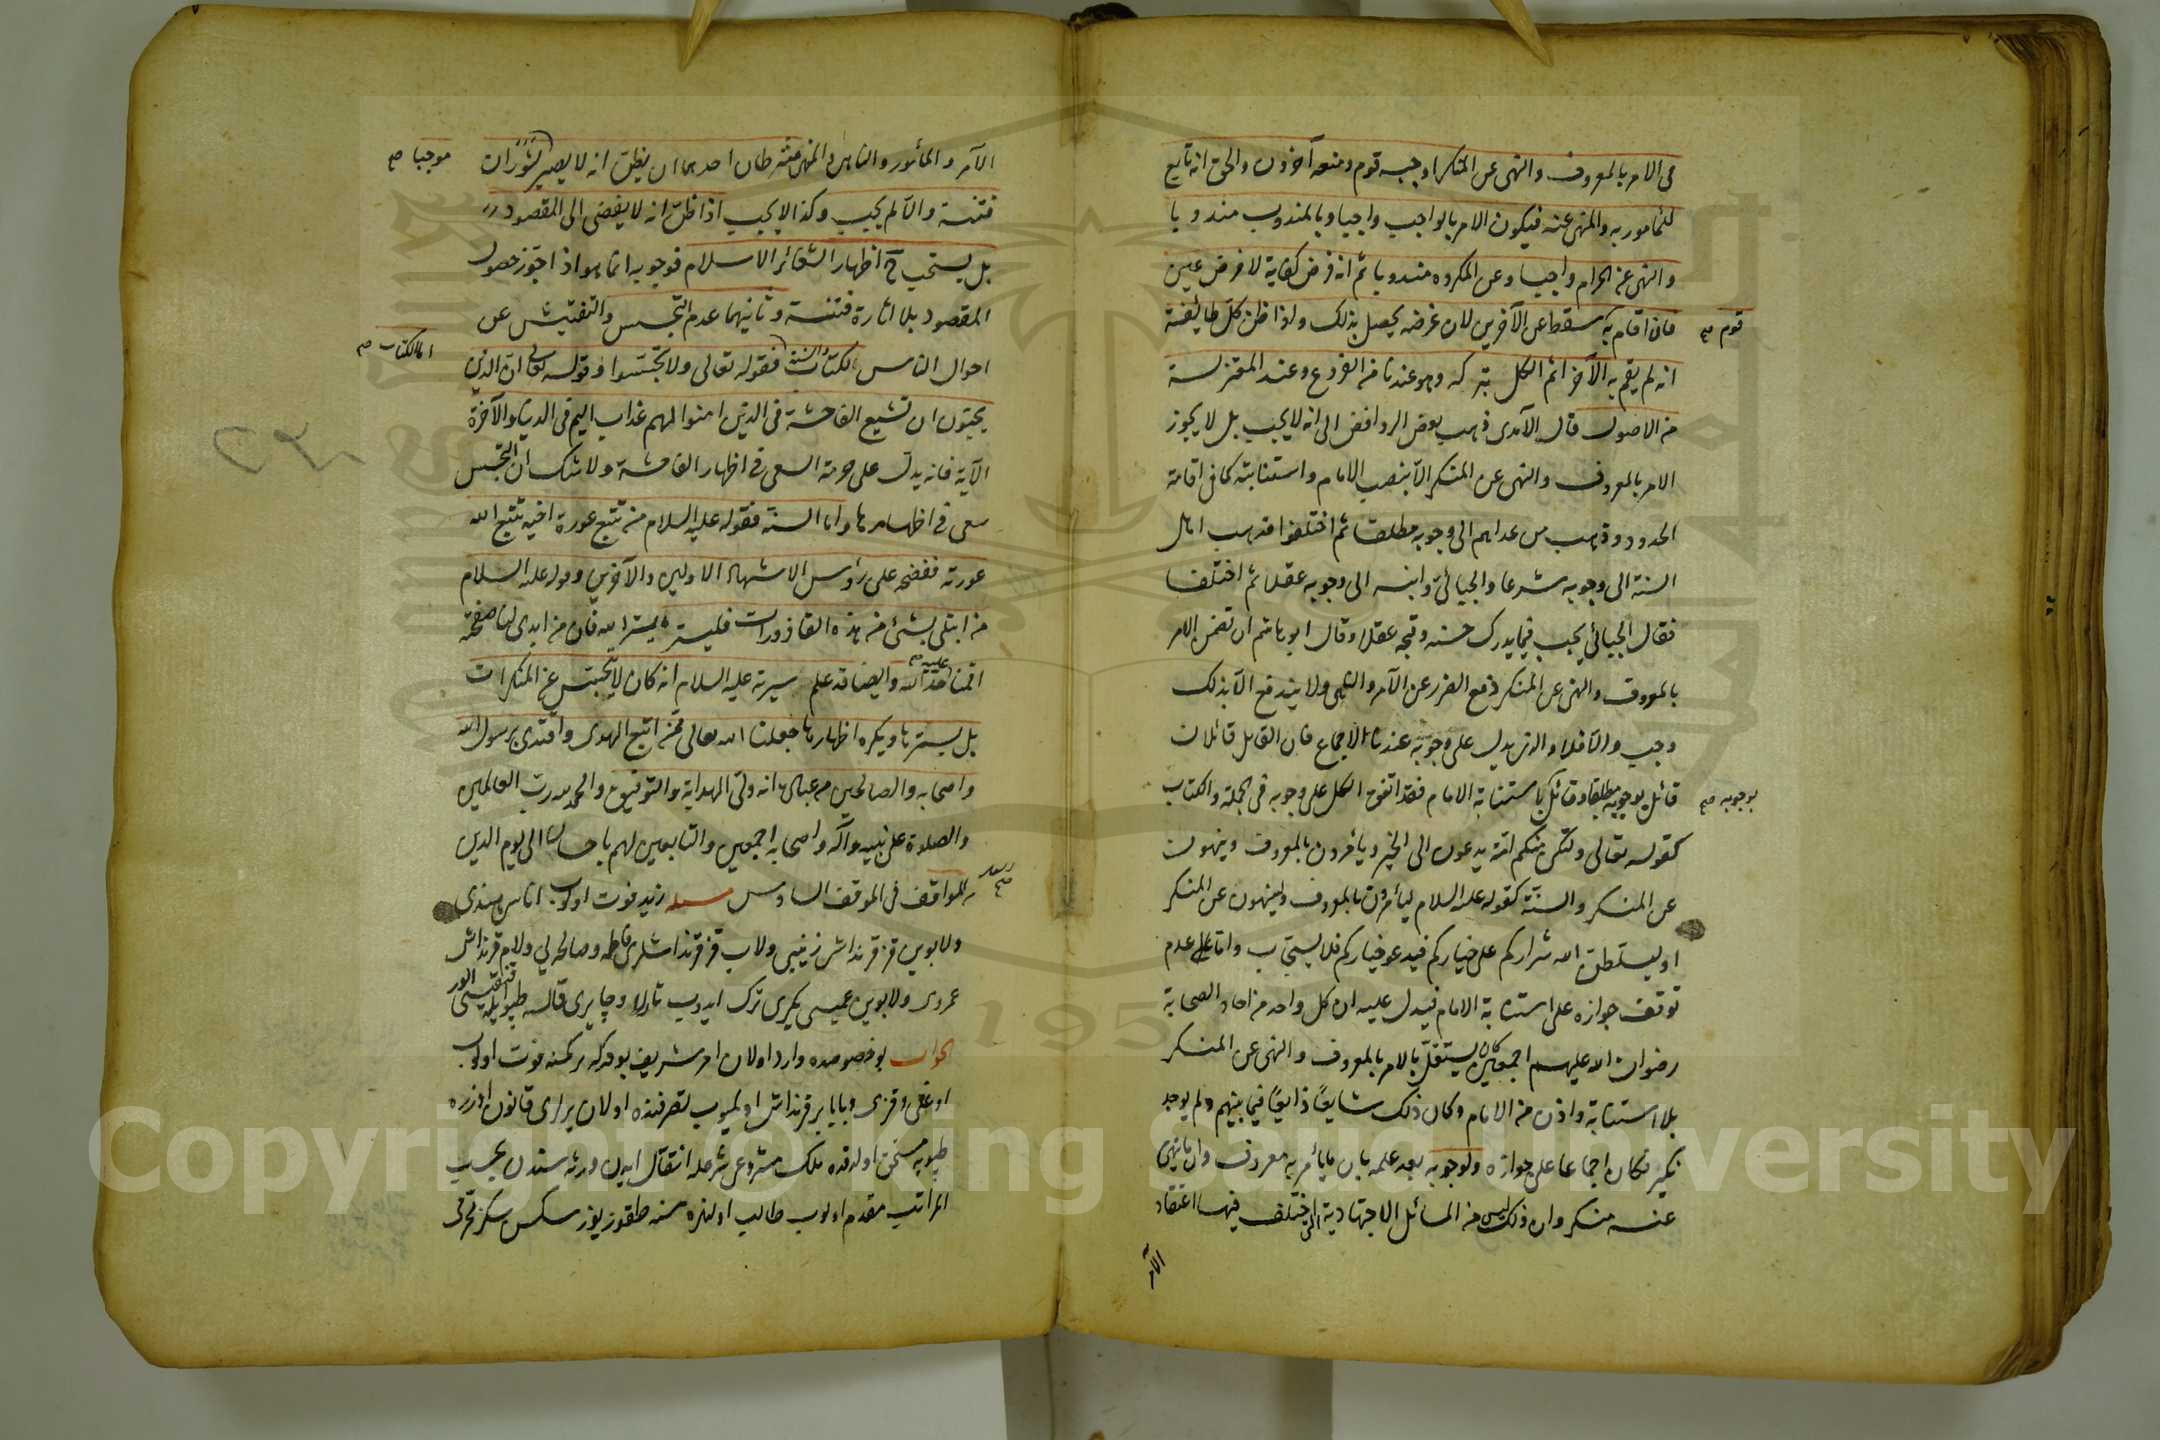 فى الامر بالمعروف والنهى عن المنكر اوجبه قوم ومنعه آخرون والحق انه تابع
للمأمور به والمنهى عنه فيكون الامر بالواجب واجبا وبالمندوب مندوبا
والنهى عن الحرام واجبا وعن المكروه مندوبا ثم انه فرض كفاية لا فرض عين
فاذا قام به سقط عن الآخرين لان غرضه يحصل بذلك ولذا ظن كل طائفة
قوم صح
انه لم يقم به الآخر اثم الكل بتركه وهو عندنا من الفروع وعند المعتزلة
من الاصول قال الآمدى ذهب بعض الروافض الى انه لا يجب بل لا يجوز
الامر بالمعروف والنهى عن المنكر الا بنصب الامام واستنابته كما فى اقامة
الحدود وذهب من عداهم الى وجوبه مطلقا ثم اختلفوا فذهب اهل
السنة الى وجوبه شرعا والجبائى وابنه الى وجوبه عقلا ثم اختلفا
فقال الجبائى يجب فيما يدرك حسنه وقبحه عقلا وقال ابو هاشم ان تضمن الامر
بالمعروف والنهى عن المنكر دفع الضرر عن الآمر والناهى ولا يندفع الا بذلك
وجب والا فلا والذى يدل على وجوبه عندنا الاجماع فان القايل قائلان
قائل بوجوبه مطلقا وقائل باستنابة الامام فقد اتفق الكل على وجوبه فى الجملة والكتاب
بوجوبه صح
كقوله تعالى ولتكن منكم امة يدعون الى الخير ويأمرون بالمعروف وينهون
عن المنكر والسنة كقوله عليه السلام ليأمرون بالمعروف ولينهون عن المنكر
او ليسلطن الله شراركم على خياركم فيدعو خياركم فلا يستجاب واما على عدم
توقف جوازه على استنابة الامام فيدل عليه ان كل واحد من احاد الصحابة
رضوان الله عليهم اجمعين كان يستقل بالامر بالمعروف والنهى عن المنكر
بلا استنابة واذن من الامام وكان ذلك شايعًا ذايعًا فيما بينهم ولم يوجد
نكير فكان اجماعا على جوازه ولوجوبه بعد علمه بان ما يأمر به معروف وان ما ينهى
عنه منكر وان ذلك ليس من المسائل الاجتهادية التى اختلف فيها اعتقاد
الآمر
الآمر والمأمور والناهى والمنهى شرطان احدهما ان يظن انه لا يصير لثوران
موجبا صح
فتنة والا لم يجب وكذا لا يجب اذا ظن انه لا يفضى الى المقصود
بل يستحب ح اظهار الشعائر الاسلام فوجوبه انما هو اذا جوز حصول
المقصود بلا اثارة فتنة وثانيهما عدم التجسس والتفتيش عن
احوال الناس للكتاب والسنة فقوله تعالى ولا تجسسوا وقوله تعالى ان الذين
اما الكتاب صح
يحبون ان تشيع الفاحشة فى الذين امنوا لهم عذاب اليم فى الدنيا والآخرة
الآية فانه يدل على حرمة السعى فى اظهار الفاحشة ولا شك ان التجسس
سعى فى اظهارها واما السنة فقوله عليه السلام من تتبع عورة اخيه تتبع الله
عورته ففضحه على رؤس الاشهاد الاولين والآخرين وقوله عليه السلام
من ابتلى بشئ من هذه القاذورات فليستره يستره الله فان من ابدى لنا صفحته
اقمنا عليه حد الله وايضا قد علم سيرته عليه السلام انه كان لا يتجسس عن المنكرات
بل يسترها ويكره اظهارها جعلنا الله تعالى ممن اتبع الهدى واقتدى برسول الله
واصحابه والصالحين من عباده انه ولى الهداية والتوفيق والحمد لله رب العالمين
والصلوة على نبيه وآله واصحابه اجمعين والتابعين لهم باحسان الى يوم الدين
المواقف فى الموقف السادس مسئله زيد فوت اولوب اناسى هندى
ولابوين قز قرنداش زينبى ولاب قز قرنداشلرى فاطمه وصالحه يى ولام قرنداش
عمروى ولابوين عميسى بكرى ترك ايدوب تارلا وچايرى قالسه طپويله قنغيسنى الور
الجواب بو خصوصده وارد اولان امر شريف بودركه بر كمسنه فوت اولوب
اوغلى وقزى وبابا بر قرنداشى اولميوب تصرفنده اولان يرلرى قانون اوزره
طپويه مستحق اولدقده ملك مشروعى شرعله انتقال ايدن ورثه سندن بحسب
المراتب مقدم اولوب طالب اولنره سنه طقوز يوز سكسن سكز محرمى